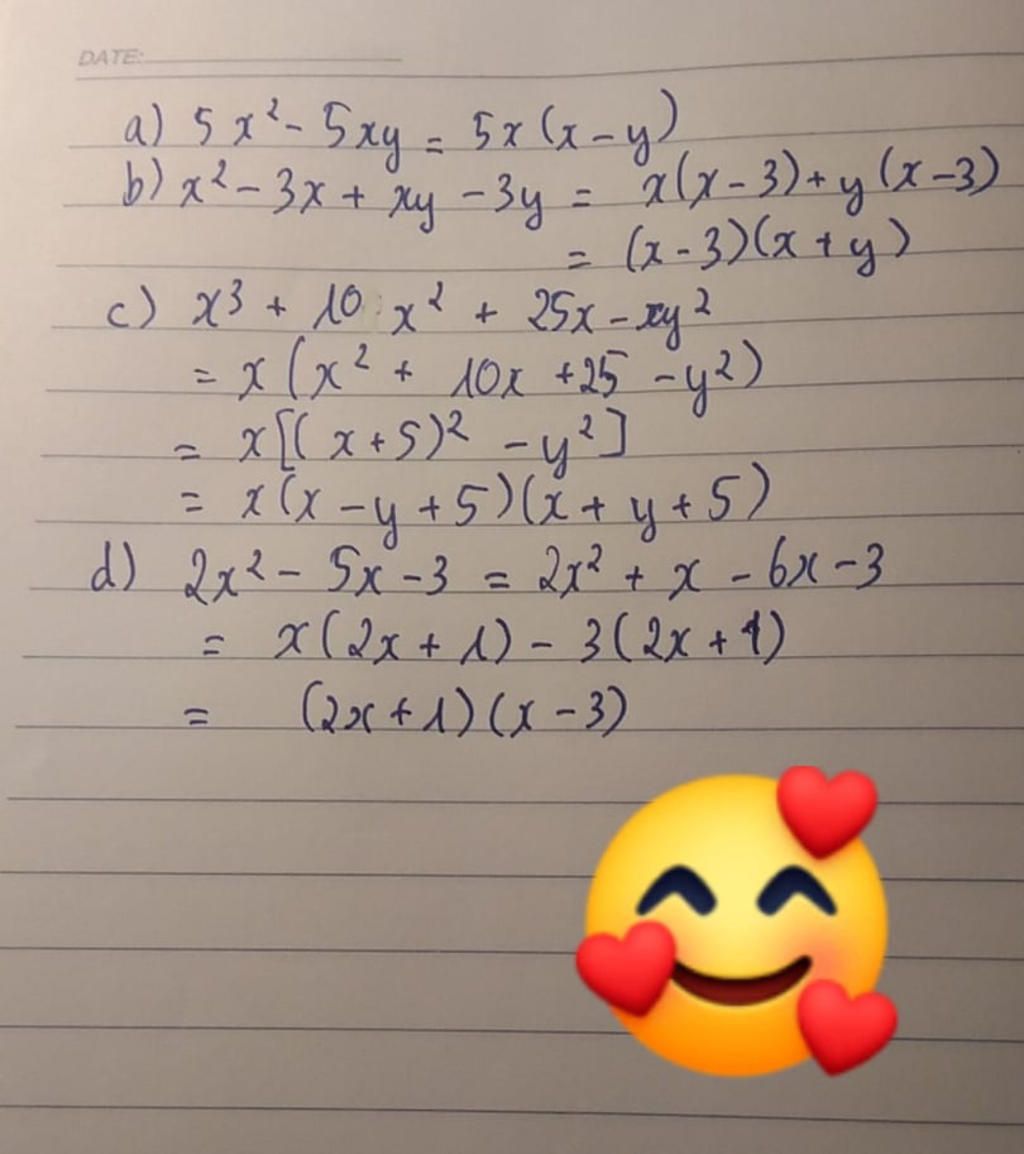 DATE:
a) 5x² - 5xy = 5x(x - y)
b) x² - 3x + xy - 3y = x(x - 3) + y(x - 3)
= (x - 3)(x + y)
c) x³ + 10x² + 25x - xy²
= x(x² + 10x + 25 - y²)
= x[(x + 5)² - y²]
= x(x - y + 5)(x + y + 5)
d) 2x² - 5x - 3 = 2x² + x - 6x - 3
= x(2x + 1) - 3(2x + 1)
= (2x + 1)(x - 3)